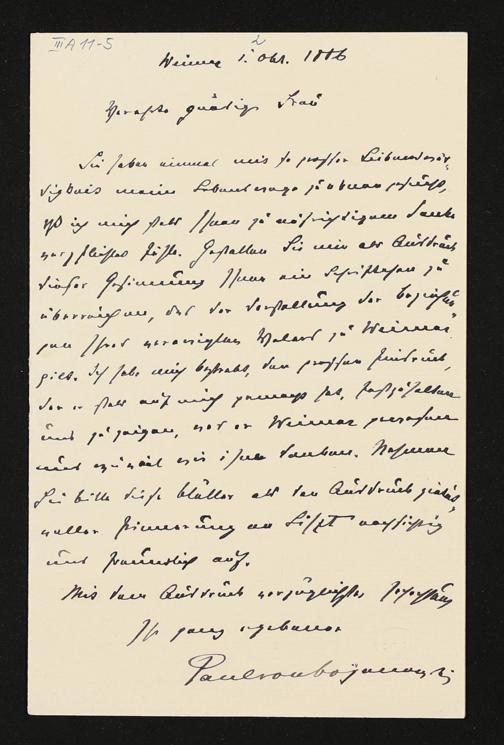 III A 11-5
Weimar 1. 2 Okt. 1886
Verehrte gnädige Frau
Sie haben einmal mit so großer Liebenswür-
digkeit meine
ich mich stets Ihnen zu aufrichtigem Danke
verpflichtet fühle. Gestatten Sie mir als Ausdruck
dieser Gesinnung Ihnen ein Schriftchen zu
überreichen, das der Darstellung der Beziehun-
gen Ihres verewigten Vaters zu Weimar
gilt. Ich habe mich bestrebt, den großen Eindruck,
den er stets auf mich gemacht hat, festzuhalten
und zu zeigen, was er Weimar gewesen
und wie viel wir ihm danken. Nehmen
Sie bitte diese Blätter als den Ausdruck pietät-
voller Erinnerung an Liszt nachsichtig
und freundlich auf.
Mit dem Ausdruck vorzüglichster Hochachtung
Ihr ganz ergebener
Paul von Bojanowski